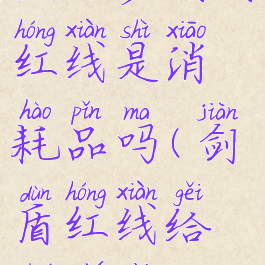 hóng xiàn shì xiāo
红线是消
hào pǐn ma jiàn
耗品吗(剑
dùn hóng xiàn gěi
盾红线给